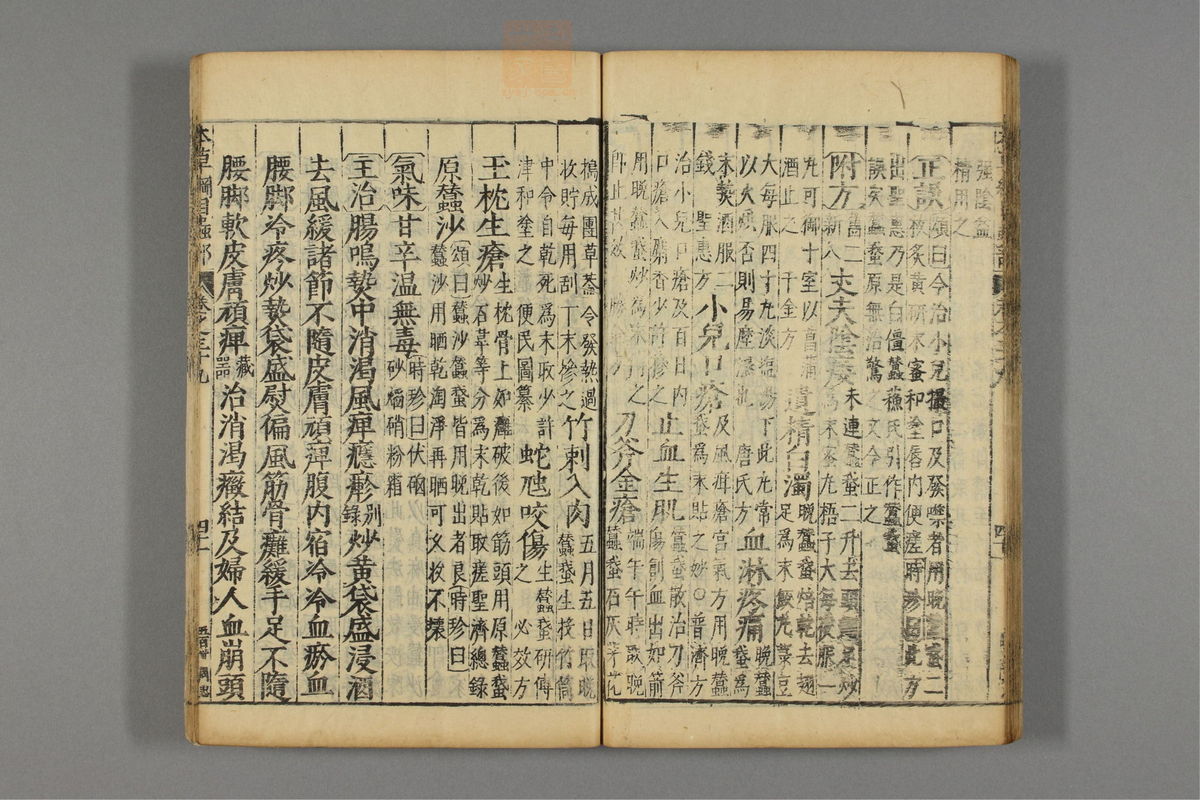 強陰益
精用之
正誤頌曰今治小兒撮口及發噤者用晚蠶蛾二
枚炙黃研末蜜和塗唇内便瘥時珍曰此方
出聖惠乃是白僵蠶蘇氏引作蠶蛾
誤矣蠶蛾原無治驚之文今正之
附方舊二新八丈夫陰痿未連蠶蛾二升去頭翅足炒
爲末蜜丸梧子大每夜服一
丸可御十室以菖蒲
酒止之 千金方 遺精白濁晚蠶蛾焙乾去翅
足爲末飯丸菉豆
大每服四十丸淡鹽湯下此丸常
以火烘否則易糜濕也 唐氏方 血淋疼痛晚蠶
蛾爲
末熱酒服二
錢 聖惠方 小兒口瘡及風疳瘡宮氣方用晚蠶
蛾爲末貼之妙○普濟方
治小兒口瘡及百日内
口瘡入麝香少許摻之 止血生肌蠶蛾散治刀斧
傷創血出如箭
用晚蠶蛾炒爲末傅之
即止 勝金方 刀斧金瘡端午午時取晚
蠶蛾石灰茅花
搗成團草蓋令發熱過
收貯每用刮下末摻之 竹刺入肉五月五日取晚
蠶蛾生投竹筒
中令自乾死爲末取少許
津和塗之 便民圖纂 蛇虺咬傷生蠶蛾研傅
之 必效方
玉枕生瘡生枕骨上如癰破後如筯頭用原蠶蛾
炒石韋等分爲末乾貼取瘥聖濟總錄
原蠶沙頌曰蠶沙蠶蛾皆用晚出者良時珍曰
蠶沙用晒乾淘淨再晒可久收不壞
氣味甘辛溫無毒時珍曰伏硇
砂焰硝粉霜
主治腸鳴熱中消渴風痺癮疹别錄炒黃袋盛浸酒
去風緩諸節不隨皮膚頑痺腹内宿冷冷血瘀血
腰脚冷疼炒熱袋盛熨偏風筋骨癱緩手足不隨
腰脚軟皮膚頑痺藏器治消渴癥結及婦人血崩頭
本草綱目蟲部 卷之三十九 四十一